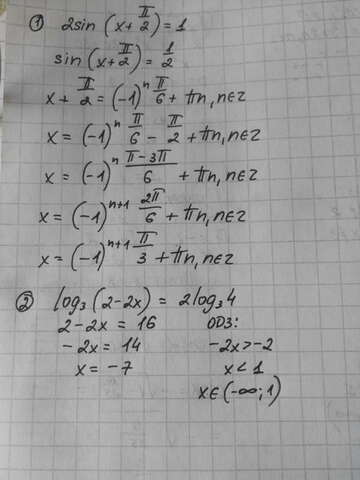 ① 2sin (x + π/2) = 1
sin (x + π/2) = 1/2
x + π/2 = (-1)ⁿ π/6 + πn, n∈z
x = (-1)ⁿ π/6 - π/2 + πn, n∈z
x = (-1)ⁿ (π-3π)/6 + πn, n∈z
x = (-1)ⁿ⁺¹ 2π/6 + πn, n∈z
x = (-1)ⁿ⁺¹ π/3 + πn, n∈z
② log₃ (2-2x) = 2log₃4
2-2x = 16 ОДЗ:
-2x = 14 -2x>-2
x = -7 x < 1
x∈(-∞; 1)